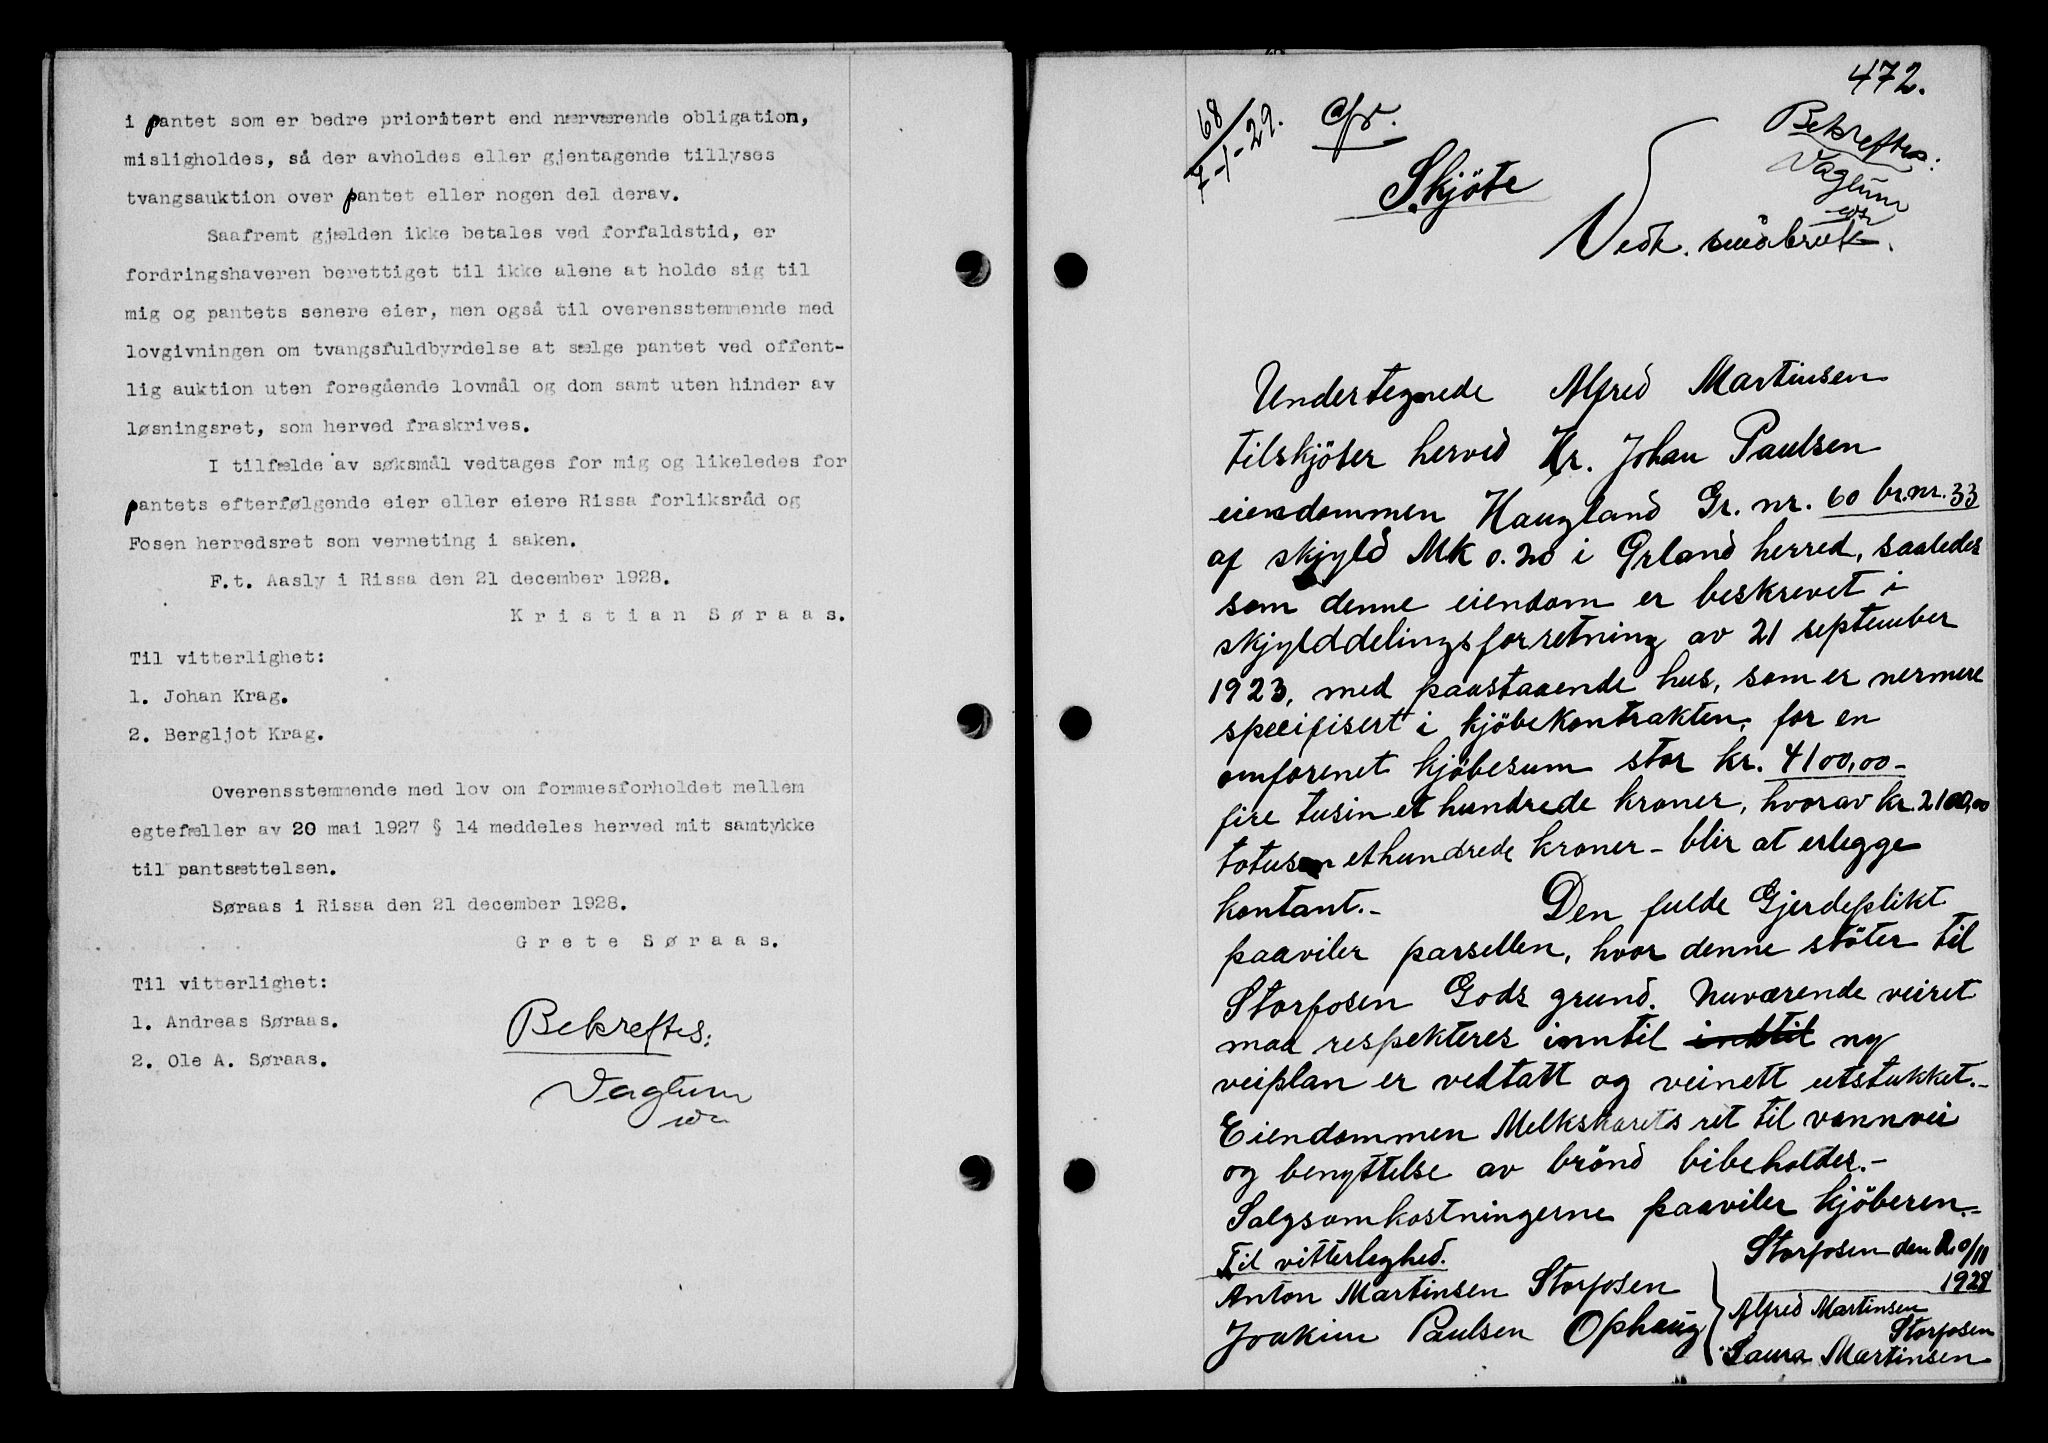 i pantet som er bedre prioritert end nærværende obligation,
misligholdes, så der avholdes eller gjentagende tillyses
tvangsauktion over pantet eller nogen del derav.
Saafremt gjælden ikke betales ved forfaldstid, er
fordringshaveren berettiget til ikke alene at holde sig til
mig og pantets senere eier, men også til overensstemmende med
lovgivningen om tvangsfuldbyrdelse at sælge pantet ved offent-
lig auktion uten foregående lovmål og dom samt uten hinder av
løsningsret, som herved fraskrives.
I tilfælde av søksmål vedtages for mig og likeledes for
pantets efterfølgende eier eller eiere Rissa forliksråd og
Fosen herredsret som verneting i saken.
F.t. Aasly i Rissa den 21 december 1928.
Kristian Søraas.
Til vitterlighet:
1. Johan Krag.
2. Bergljot Krag.
Overensstemmende med lov om formuesforholdet mellem
egtefæller av 20 mai 1927 § 14 meddeles herved mit samtykke
til pantsættelsen.
Søraas i Rissa den 21 december 1928.
Grete Søraas.
Til vitterlighet:
1. Andreas Søraas.
2. Ole A. Søraas.
Bekreftes:
Vaglum
472.
68/7-1-29.
Bekreftes:
Vaglum
Skjöte
Vedk. småbruk.
Undertegnede Alfred Martinsen
tilskjöter herved Hr. Johan Paulsen
eiendommen Haugland Gr. nr. 60 br.nr. 33
af skjyld Mk 0.20 i Ørland herred, saaledes
som denne eiendom er beskrevet i
skjylddelingsforretning av 21 september
1923, med paastaaende hus, som er nermere
specifisert i kjöbekontrakten, for en
omforenet kjöbesum stor kr. 4100,00-
fire tusin et hundrede kroner, hvorav kr. 2100,00
totusen ethundrede kroner - blir at erlegge
kontant.- Den fulde Gjerdeplikt
paaviler parsellen, hvor denne stöter til
Storfosen Gods grund. Nuværende veiret
maa respekteres inntil indtil ny
veiplan er vedtatt og veinett utstukket.-
Eiendommen Melkskarets ret til vannvei
og benyttelse av brönd bibeholdes.-
Salgsomkostningerne paaviler kjöberen.-
Storfosen den 20/11
1928
Til vitterleghed.
Anton Martinsen Storfosen
Joakim Paulsen Ophaug
Alfred Martinsen
Storfosen
Laura Martinsen